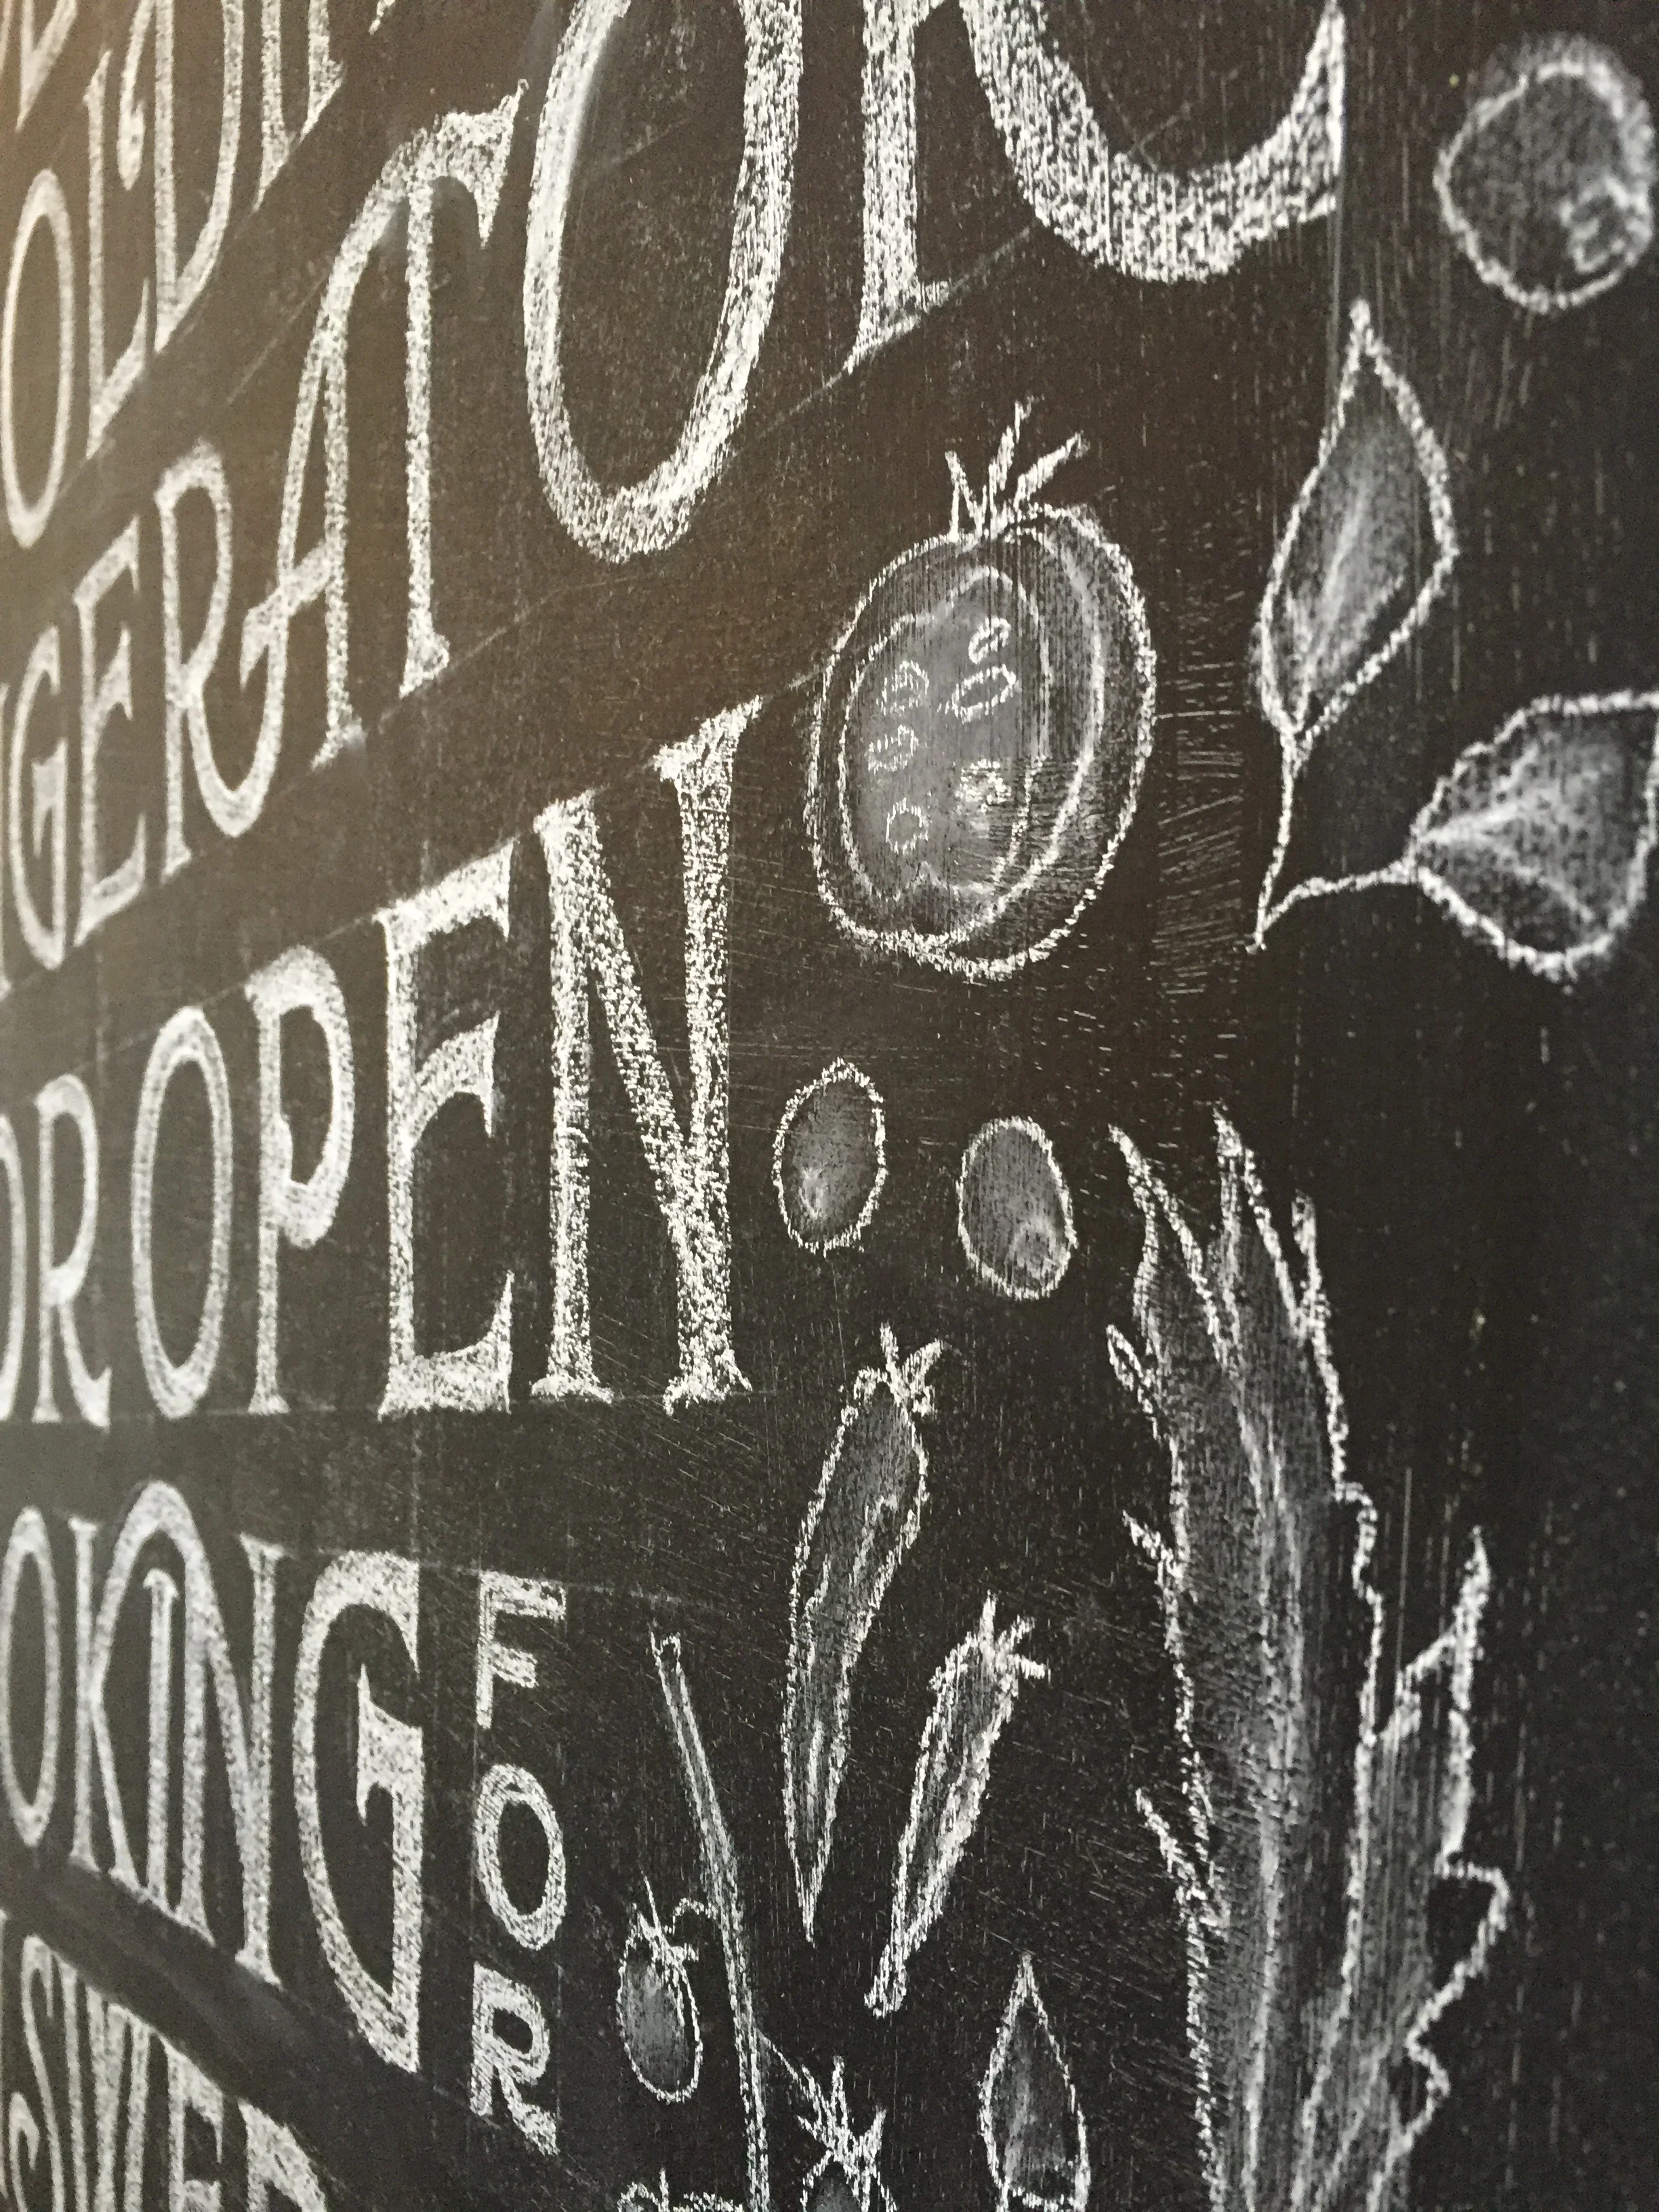 OLDI
GERATOR
OR OPEN
OKING FOR
SWER